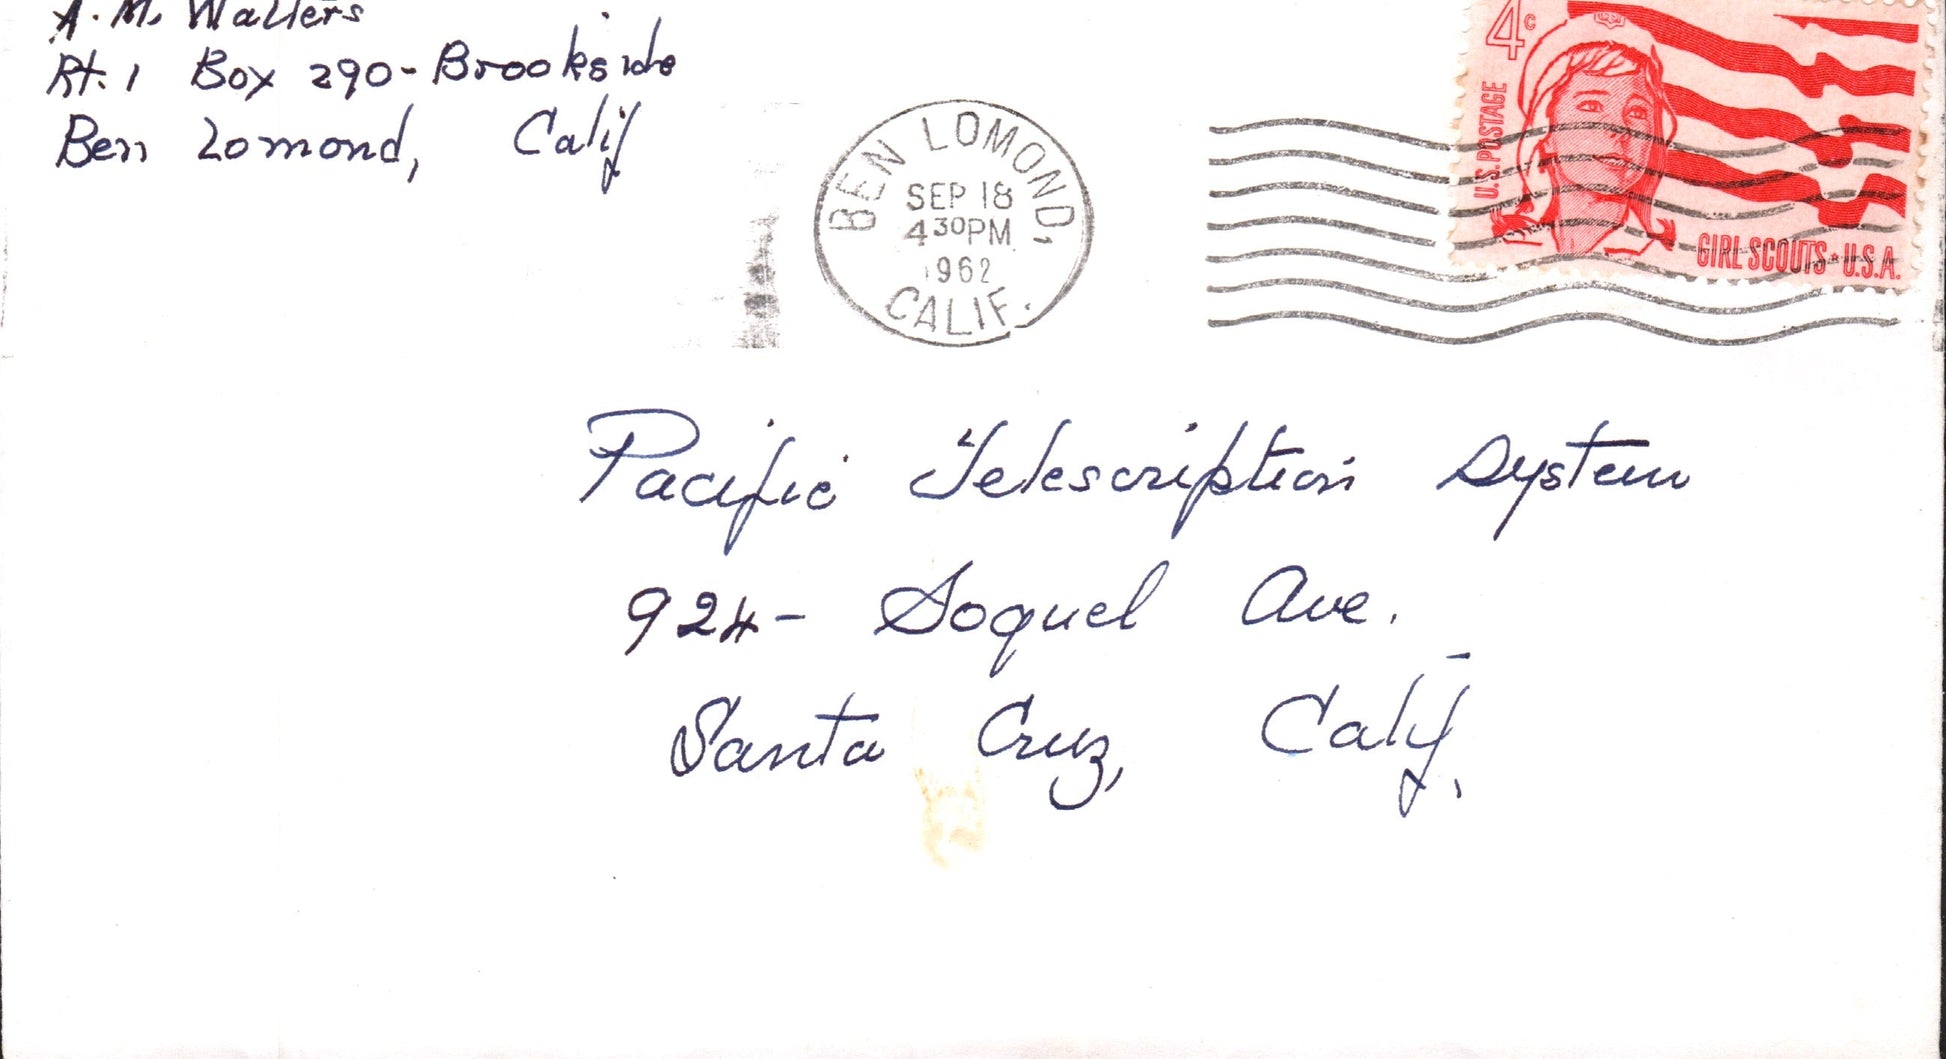 A. M. Walters
Rt. 1 Box 290 - Brookside
Ben Lomond, Calif
BEN LOMOND,
SEP 18
4 30 PM
1962
CALIF.
4c
U.S. POSTAGE
GIRL SCOUTS * U.S.A.
Pacific Telescription System
924 - Soquel Ave.
Santa Cruz, Calif.